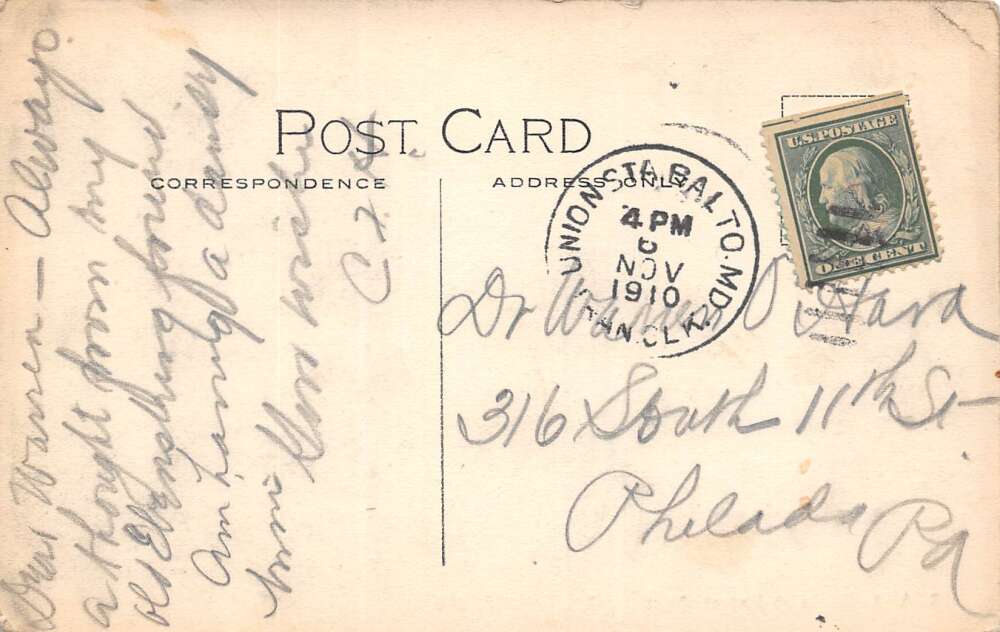 POST CARD
CORRESPONDENCE
ADDRESS ONLY
U.S. POSTAGE
ONE CENT
UNION STA. BALTO. MD.
4 PM
NOV
1910
TRAN. CLK.
Dear Warren - Always
a thought from my
old Ebensburg friend
Am having a dandy
time Good wishes
Dr Warren O'Hara
316 South 11th St
Philada Pa